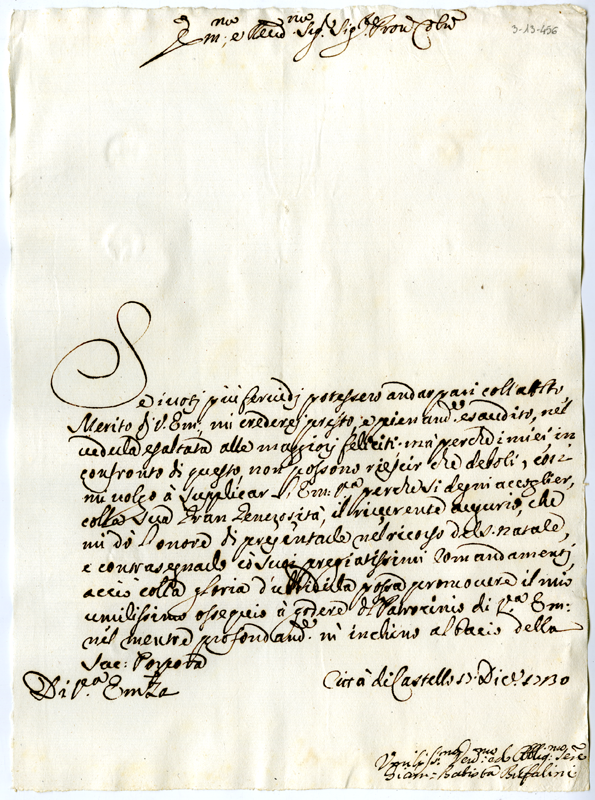 3-13-456
Em:mo e Reud:mo Sig:r Sig:r Pron Colmo
Se i uoti piú feruidi potessero andar pari coll'alto
Merito di V. Em:, mi crederei presto, e pienam:te esaudito, nel
uederla esaltata alle maggiori felicità. ma perche i miei in
confronto di questo non possono riescir che deboli, cosi
mi uolgo à supplicar V. Em:za perche si degni accoglier,
colla Sua Gran Generosità, il riuerente augurio, che
mi dò l'onore di presentarle nel ricorso del S. Natale,
e contrasegnarlo co Suoi pregiatissimi Comandamenti,
acciò colla gloria d'ubbidirla possa promouere il mio
umilissimo ossequio à godere di Patrocinio di V.a Em:
nel mentre profondam:te m'inchino al bacio della
Sac: Porpora
Di V.a Em:za
Città di Castello 17. Dic:e 1730
Umiliss:mo Seu:re ed Obblig:mo
Giam: Batista Bufalini